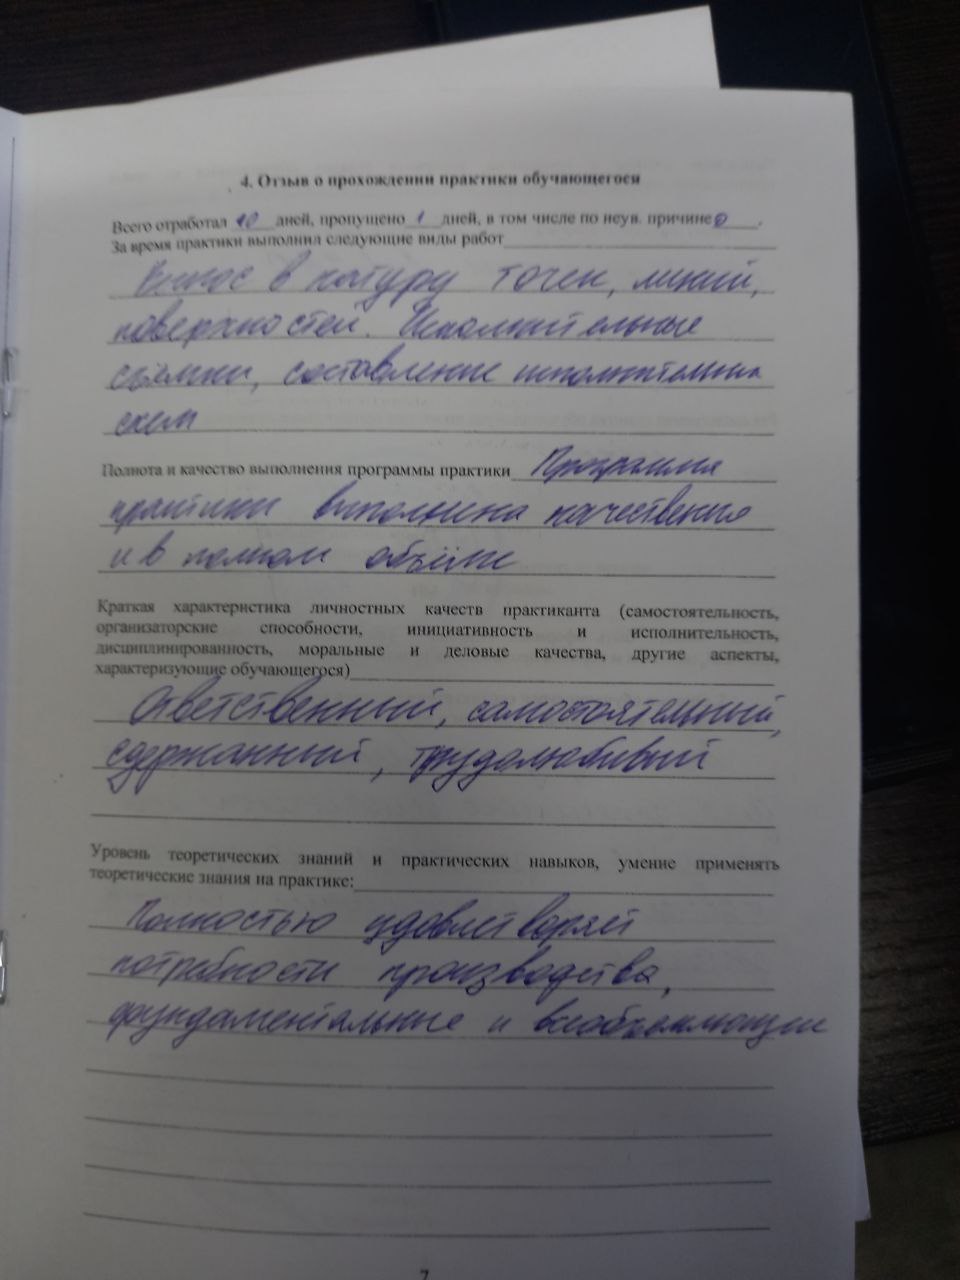 4. Отзыв о прохождении практики обучающегося
Всего отработал 10 дней, пропущено 1 дней, в том числе по неув. причине 0.
За время практики выполнил следующие виды работ
Вынос в натуру точек, линий,
поверхностей. Исполнительные
съемки, составление исполнительных
схем
Полнота и качество выполнения программы практики Программа
практики выполнена качественно
и в полном объёме
Краткая характеристика личностных качеств практиканта (самостоятельность,
организаторские способности, инициативность и исполнительность,
дисциплинированность, моральные и деловые качества, другие аспекты,
характеризующие обучающегося)
Ответственный, самостоятельный,
сдержанный, трудолюбивый
Уровень теоретических знаний и практических навыков, умение применять
теоретические знания на практике:
Полностью удовлетворяет
потребности производства,
фундаментальные и всеобъемлющие
7